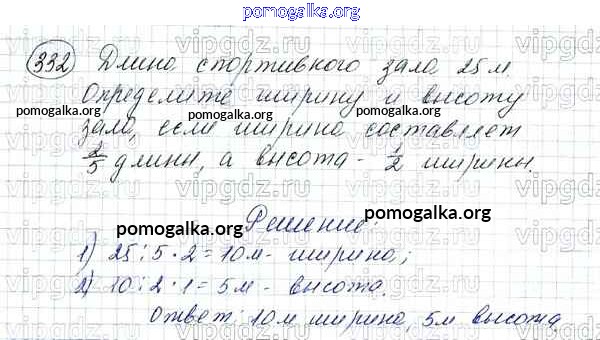 pomogalka.org
332 Длина спортивного зала 25 м.
Определите ширину и высоту
зала, если ширина составляет
2/5 длины, а высота - 1/2 ширины.
Решение:
1) 25 : 5 · 2 = 10 м - ширина;
2) 10 : 2 · 1 = 5 м - высота.
Ответ: 10 м ширина, 5 м высота
vipgdz.ru
pomogalka.org